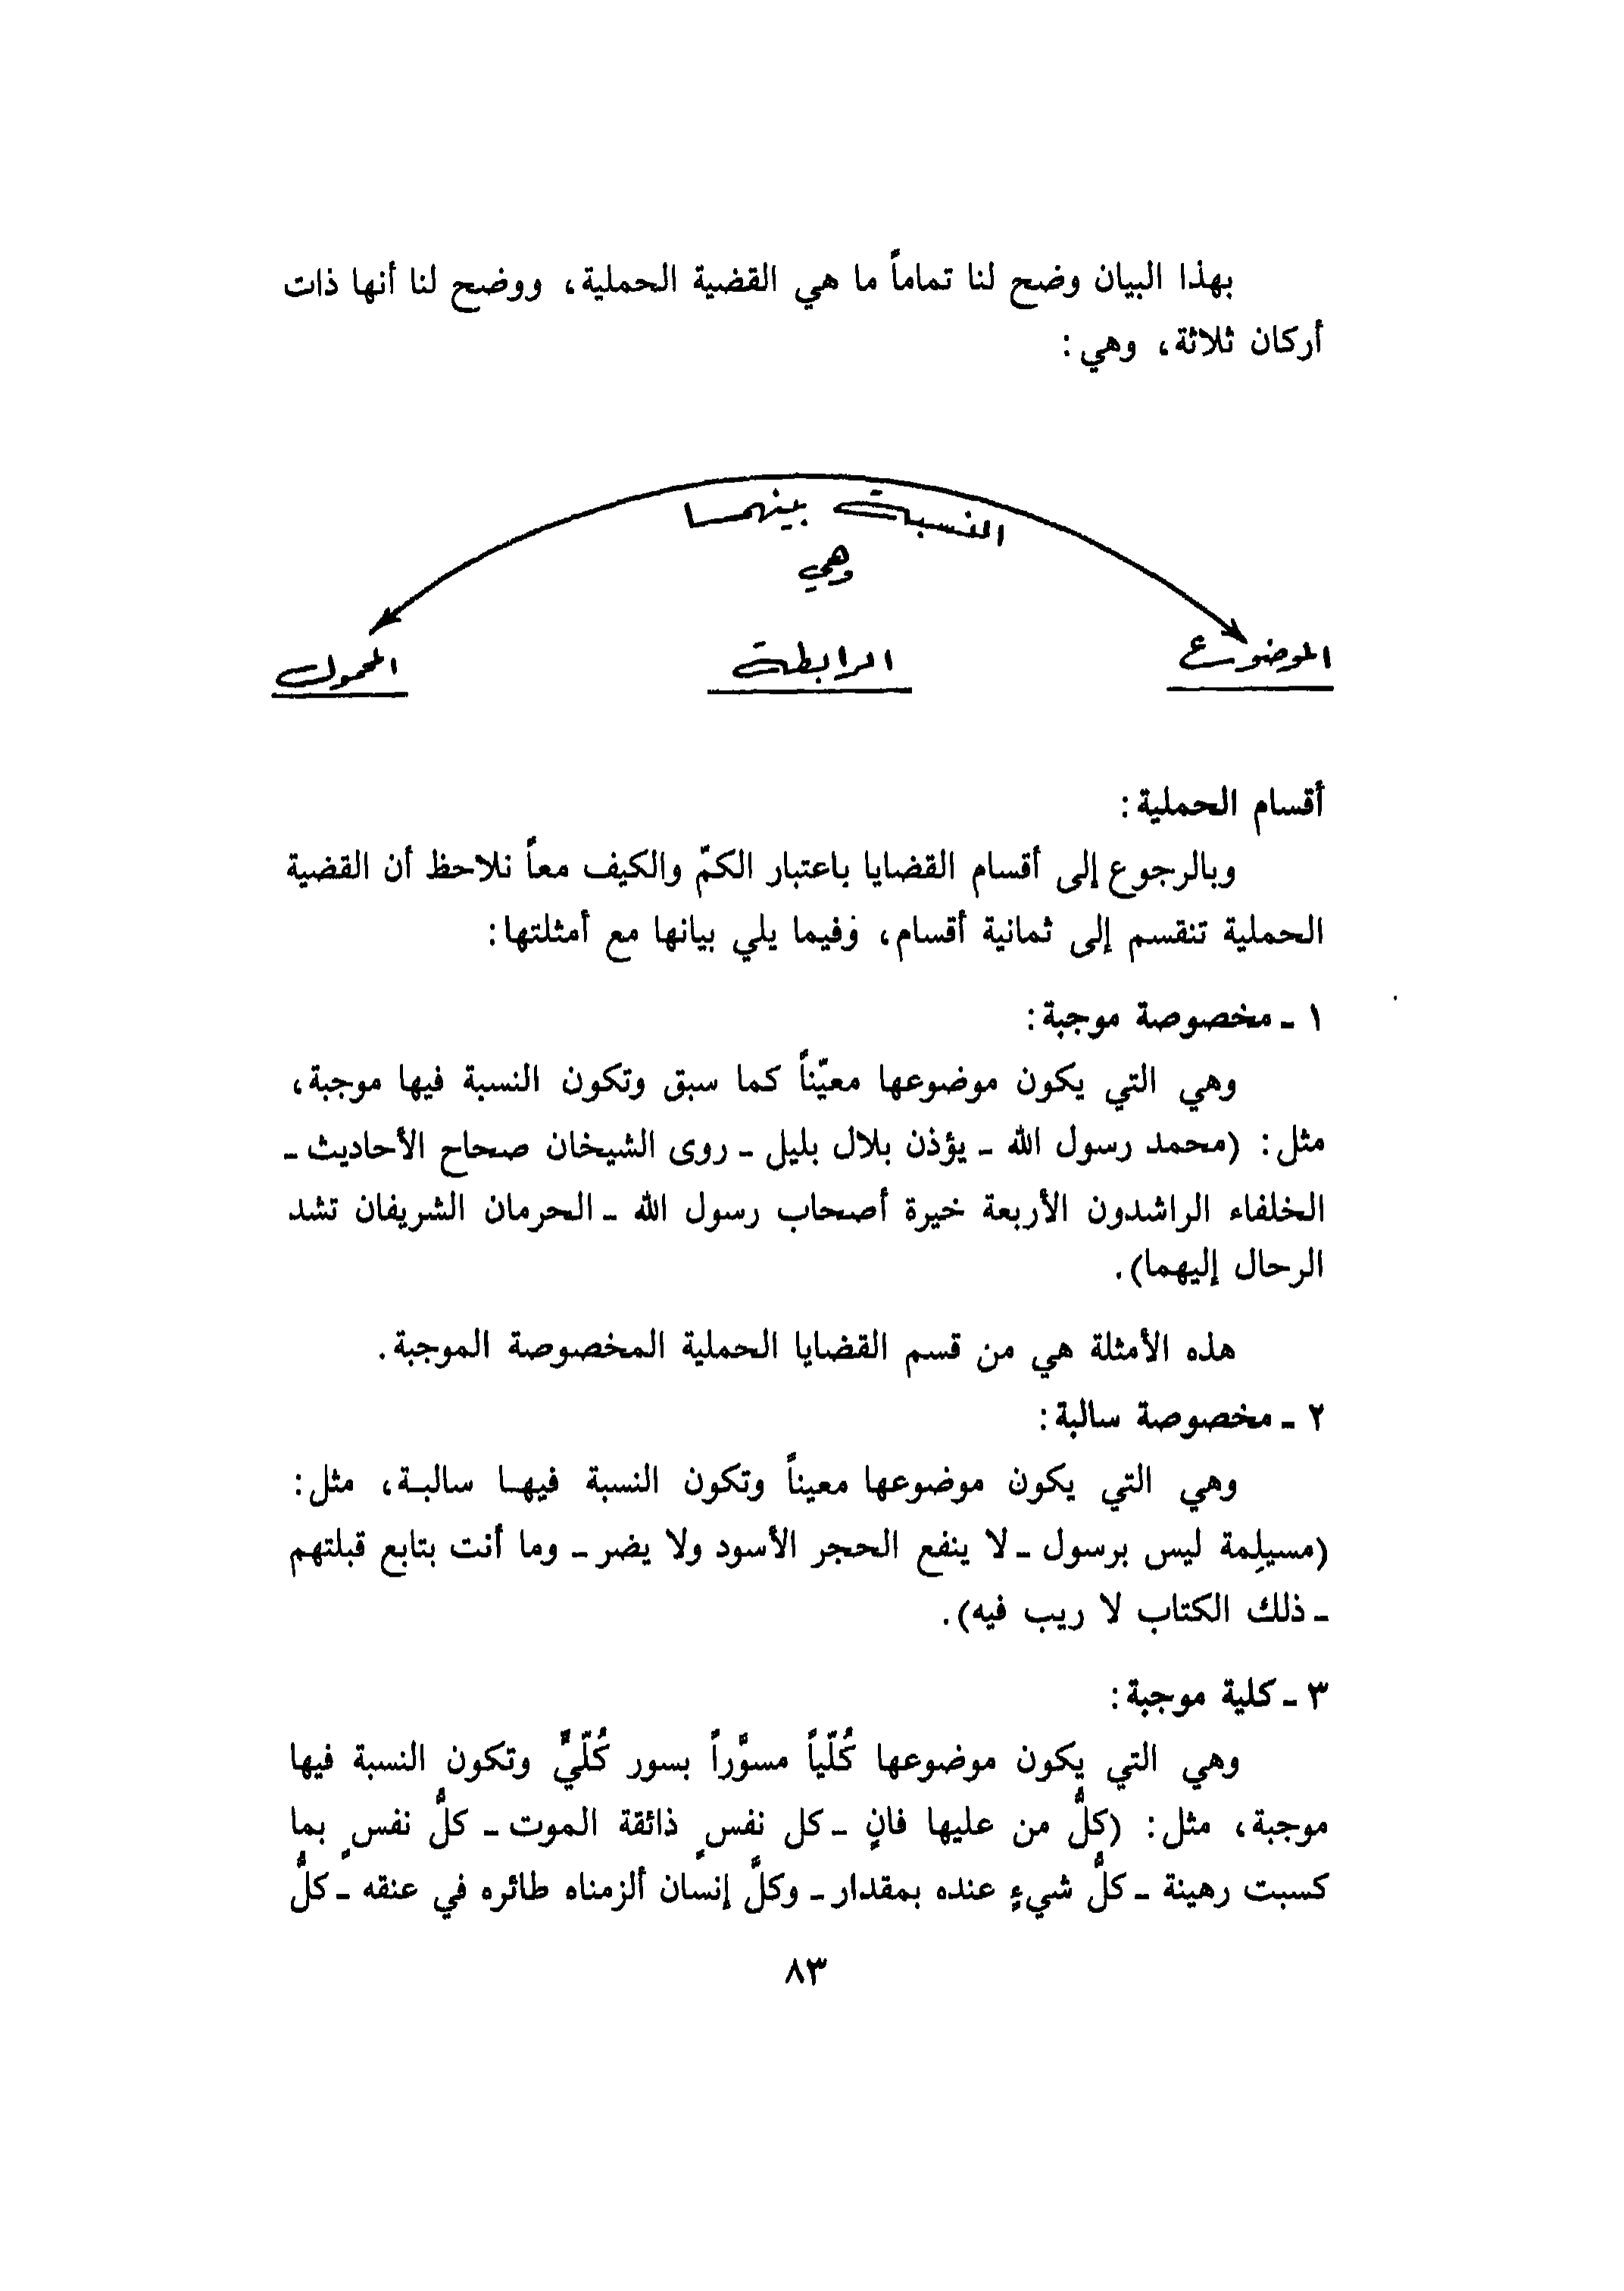 بهذا البيان وضح لنا تماماً ما هي القضية الحملية، ووضح لنا أنها ذات
أركان ثلاثة، وهي:
النسبة بينهما
وهي
الموضوع الرابطة المحمول
أقسام الحملية:
وبالرجوع إلى أقسام القضايا باعتبار الكمّ والكيف معاً نلاحظ أن القضية
الحملية تنقسم إلى ثمانية أقسام، وفيما يلي بيانها مع أمثلتها:
١ ـ مخصوصة موجبة:
وهي التي يكون موضوعها معيّناً كما سبق وتكون النسبة فيها موجبة،
مثل: (محمد رسول الله ـ يؤذن بلال بليل ـ روى الشيخان صحاح الأحاديث ـ
الخلفاء الراشدون الأربعة خيرة أصحاب رسول الله ـ الحرمان الشريفان تشد
الرحال إليهما).
هذه الأمثلة هي من قسم القضايا الحملية المخصوصة الموجبة.
٢ ـ مخصوصة سالبة:
وهي التي يكون موضوعها معيناً وتكون النسبة فيهـا سالبـة، مثل:
(مسيلِمة ليس برسول ـ لا ينفع الحجر الأسود ولا يضر ـ وما أنت بتابع قبلتهم
ـ ذلك الكتاب لا ريب فيه).
٣ ـ كلية موجبة:
وهي التي يكون موضوعها كُلّياً مسوَّراً بسور كُلّيٍّ وتكون النسبة فيها
موجبة، مثل: (كلُّ من عليها فانٍ ـ كل نفسٍ ذائقة الموت ـ كلُّ نفسٍ بما
كسبت رهينة ـ كلُّ شيءٍ عنده بمقدار ـ وكلَّ إنسان ألزمناه طائره في عنقه ـ كلُّ
٨٣